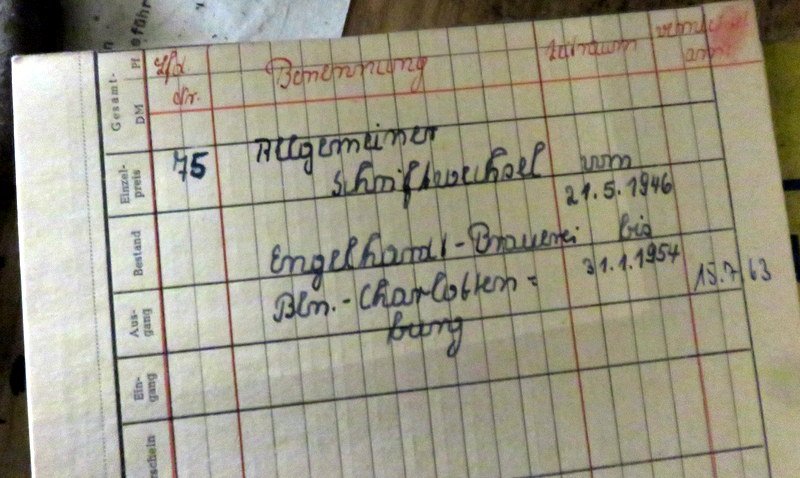 Gesamt-
DM Pf
Einzel-
preis
Bestand
Aus-
gang
Ein-
gang
schein
Lfd.
Nr.
Benennung
Zeitraum
am
75
Allgemeiner
Schriftwechsel vom
21.5.1946
Engelhardt-Brauerei bis
31.1.1954
Bln.-Charlotten=
burg
15.7.63